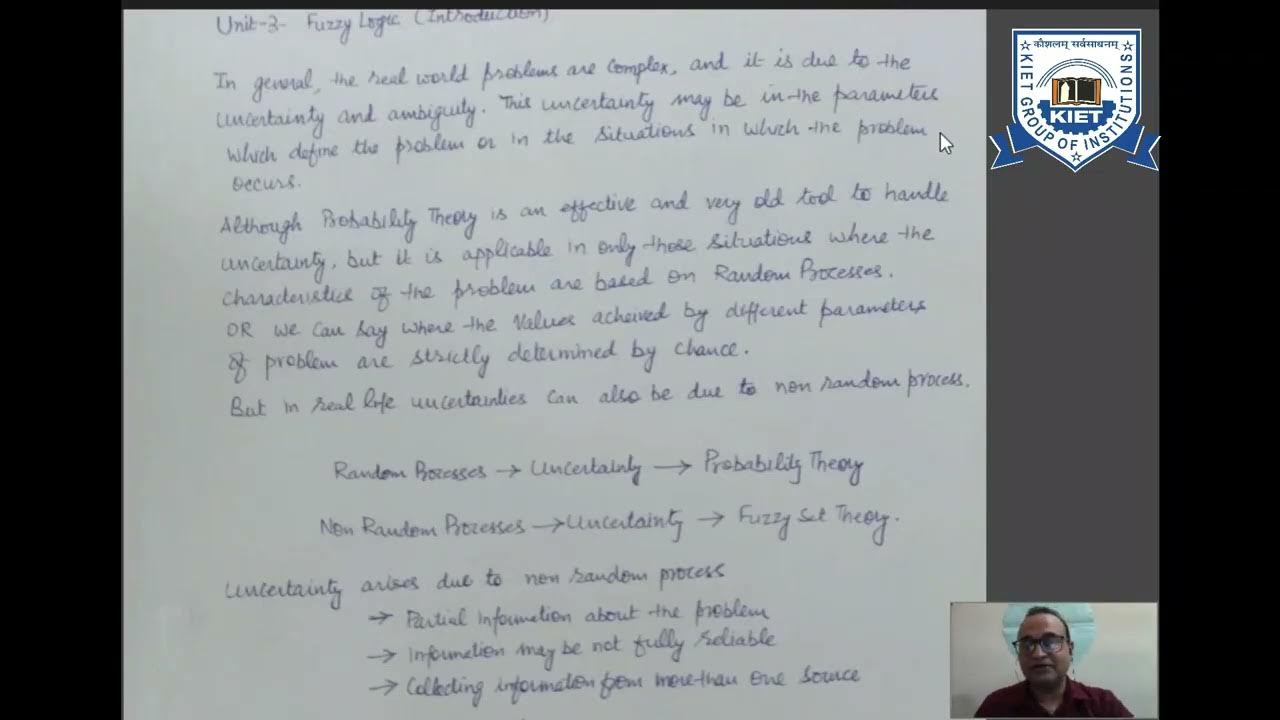 Unit-3- Fuzzy Logic (Introduction)
In general, the real world problems are complex, and it is due to the
uncertainty and ambiguity. This uncertainty may be in the parameters
which define the problem or in the situations in which the problem
occurs.
Although Probability Theory is an effective and very old tool to handle
uncertainty, but it is applicable in only those situations where the
characteristics of the problem are based on Random Processes.
OR we can say where the values acheived by different parameters
of problem are strictly determined by chance.
But in real life uncertainties can also be due to non random process.
Random Processes → Uncertainty → Probability Theory
Non Random Processes → Uncertainty → Fuzzy Set Theory.
Uncertainty arises due to non random process
→ Partial information about the problem
→ Information may be not fully reliable
→ Collecting information from more than one source
कौशलम् सर्वसाधनम्
KIET GROUP OF INSTITUTIONS
KIET